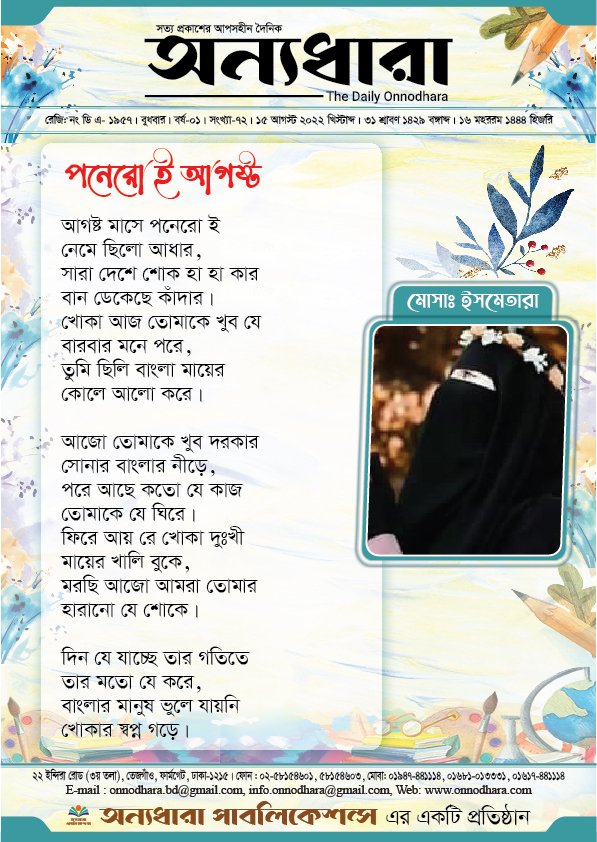 সত্য প্রকাশের আপসহীন দৈনিক
অন্যধারা
The Daily Onnodhara
রেজি: নং ডি এ- ১৯৫৭ । বুধবার । বর্ষ-০১ । সংখ্যা-৭২ । ১৫ আগস্ট ২০২২ খিস্টাব্দ । ৩১ শ্রাবণ ১৪২৯ বঙ্গাব্দ । ১৬ মহররম ১৪৪৪ হিজরি
পনেরো ই আগষ্ট
আগষ্ট মাসে পনেরো ই
নেমে ছিলো আধার,
সারা দেশে শোক হা হা কার
বান ডেকেছে কাঁদার।
খোকা আজ তোমাকে খুব যে
বারবার মনে পরে,
তুমি ছিলি বাংলা মায়ের
কোলে আলো করে।
আজো তোমাকে খুব দরকার
সোনার বাংলার নীড়ে,
পরে আছে কতো যে কাজ
তোমাকে যে ঘিরে।
ফিরে আয় রে খোকা দুঃখী
মায়ের খালি বুকে,
মরছি আজো আমরা তোমার
হারানো যে শোকে।
দিন যে যাচ্ছে তার গতিতে
তার মতো যে করে,
বাংলার মানুষ ভুলে যায়নি
খোকার স্বপ্ন গড়ে।
মোসাঃ ইসমেতারা
২২ ইন্দিরা রোড (৩য় তলা), তেজগাঁও, ফার্মগেট, ঢাকা-১২১৫। ফোন : ০২-৫৮১৫৪৬০১, ৫৮১৫৪৬০৩, মোবা: ০১৯৪৭-৪৪১১১৪, ০১৬৮১-০১৩৩৩১, ০১৬১৭-৪৪১১১৪
E-mail : onnodhara.bd@gmail.com, info.onnodhara@gmail.com, Web: www.onnodhara.com
অন্যধারা পাবলিকেশন্সে এর একটি প্রতিষ্ঠান